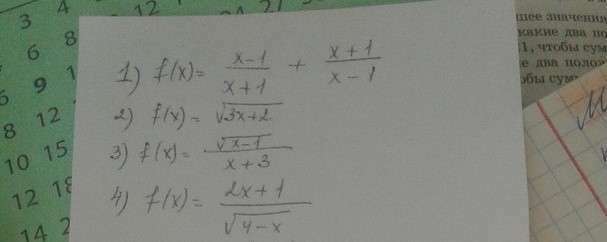 1) f(x) = \frac{x-1}{x+1} + \frac{x+1}{x-1}
2) f(x) = \sqrt{3x+2}
3) f(x) = \frac{\sqrt{x-1}}{x+3}
4) f(x) = \frac{2x+1}{\sqrt{4-x}}
3 4
6 8
9 1
8 12
10 15
12 18
14 2
27
шее значени
какие два по
1, чтобы сум
е два полож
обы сум